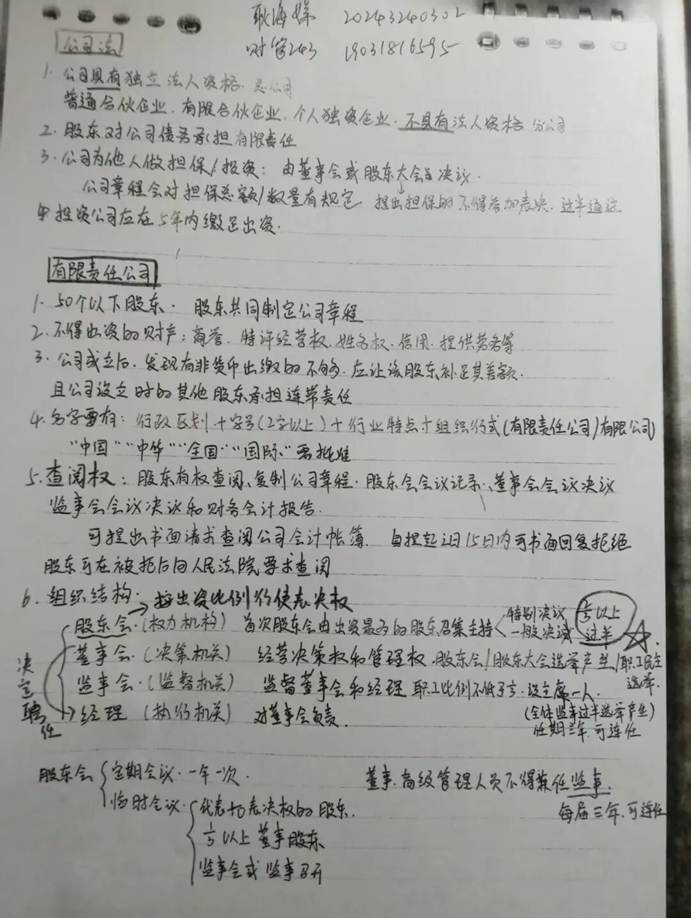 耿海媒 20243240302
财管243 19031816595
公司法
1. 公司具有独立法人资格. 总公司
普通合伙企业、有限合伙企业、个人独资企业、不具有法人资格 分公司
2. 股东对公司债务承担有限责任
3. 公司为他人做担保/投资: 由董事会或股东大会决议.
公司章程会对担保总额/数量有规定 提出担保的不得参加表决. 过半通过
4. 投资公司应在5年内缴足出资.
有限责任公司
1. 50个以下股东. 股东共同制定公司章程
2. 不得出资的财产: 商誉、特许经营权、姓名权、信用、提供劳务等
3. 公司成立后、发现有非货币出缴的不够、应让该股东补足其差额.
且公司设立时的其他股东承担连带责任
4. 名字要有: 行政区划+字号(2字以上)+行业特点+组织形式(有限责任公司/有限公司)
"中国""中华""全国""国际"要批准
5. 查阅权: 股东有权查阅、复制公司章程、股东会会议记录、董事会会议决议
监事会会议决议和财务会计报告.
可提出书面请求查阅公司会计帐簿. 自提起之日15日内可书面回复拒绝
股东可在被拒后向人民法院要求查阅
6. 组织结构: 按出资比例行使表决权
股东会.(权力机构) 首次股东会由出资最多的股东召集主持 特别决议 2/3以上
一般决议 过半
董事会.(决策机关) 经营决策权和管理权. 股东会/股东大会选举产生/职工民主选举.
监事会.(监督机关) 监督董事会和经理 职工比例不低于1/3. 设主席一人.
(全体监事过半选举产生)
任期三年. 可连任
决定聘任
经理 (执行机关) 对董事会负责.
股东会 定期会议. 一年一次.
临时会议. 代表1/10表决权的股东.
1/3以上董事股东
监事会或监事召开
董事. 高级管理人员不得兼任监事.
每届三年. 可连任